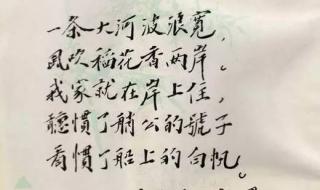 一条大河波浪宽，
風吹稻花香两岸。
我家就在岸上住，
聽慣了艄公的號子
看慣了船上的白帆。